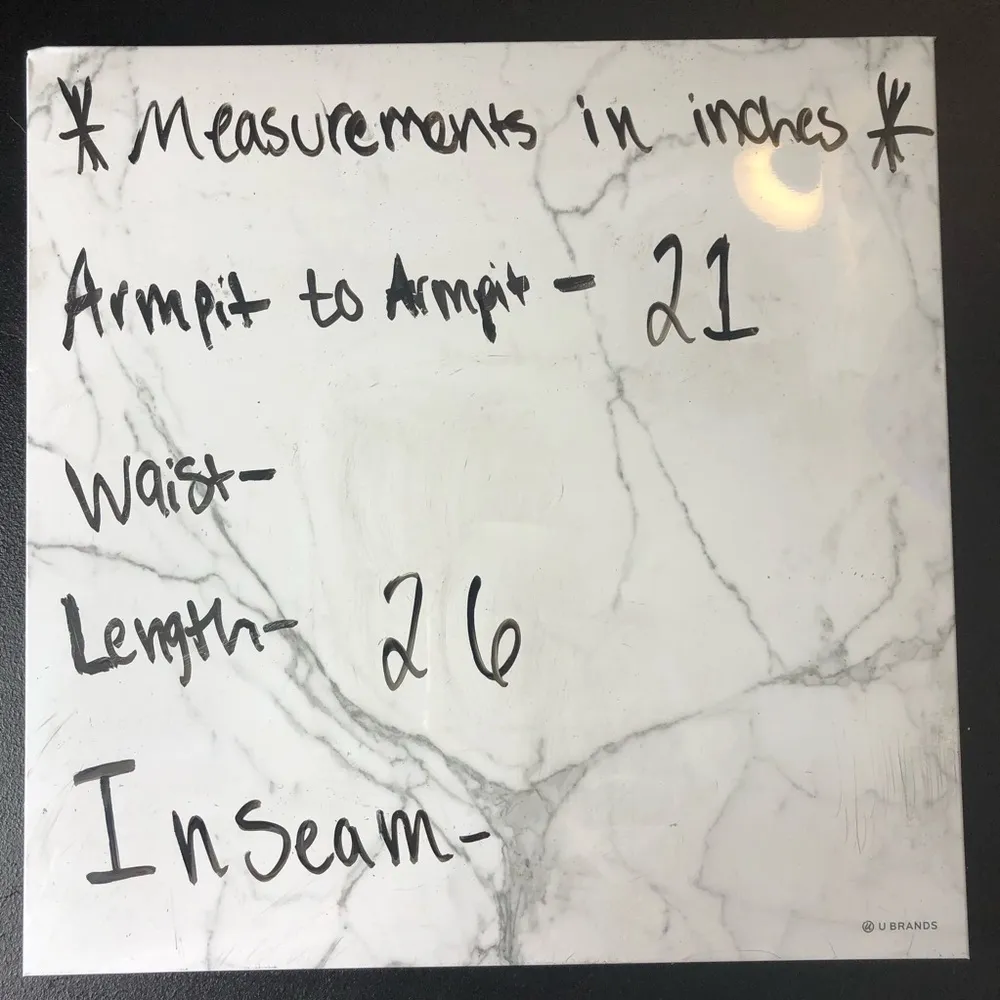 * Measurements in inches *
Armpit to Armpit - 21
Waist-
Length- 26
Inseam-
U BRANDS